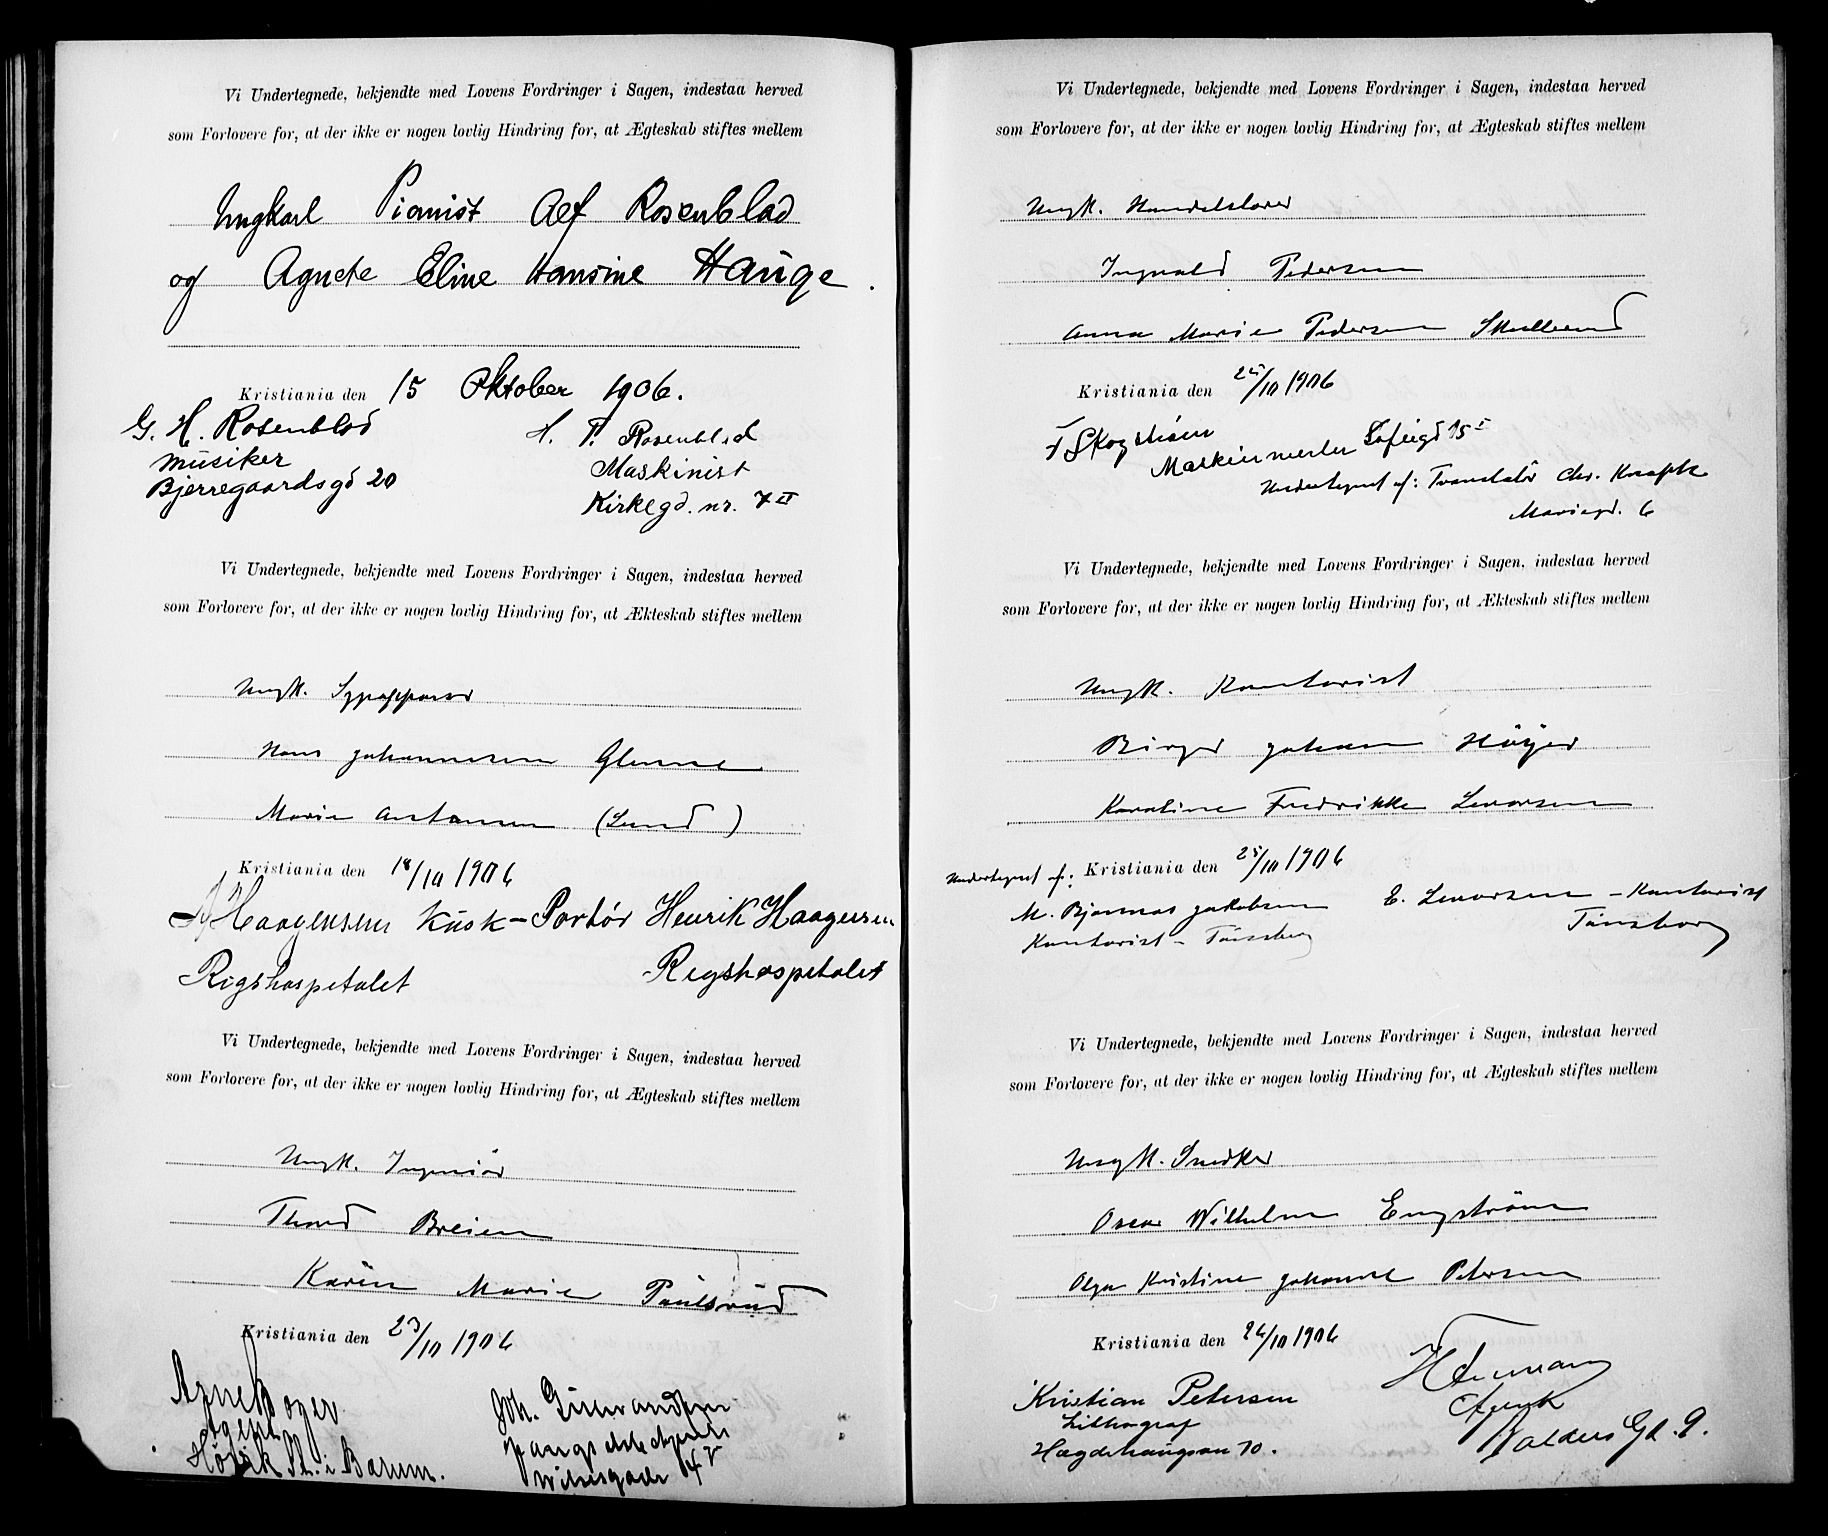 Vi Undertegnede, bekjendte med Lovens Fordringer i Sagen, indestaa herved
som Forlovere for, at der ikke er nogen lovlig Hindring for, at Ægteskab stiftes mellem
Ungkarl Pianist Alf Rosenblad
og Agnete Eline Hansine Hauge.
Kristiania den 15 Oktober 1906.
G. H. Rosenblad
Musiker
Bjerregaardsgd 20
H. T. Rosenblad
Maskinist
Kirkegd. nr. 7 II
Vi Undertegnede, bekjendte med Lovens Fordringer i Sagen, indestaa herved
som Forlovere for, at der ikke er nogen lovlig Hindring for, at Ækteskab stiftes mellem
Ungk.
Hans Johannesen Glenne
Marie Antonsen (Lund)
Kristiania den 18/10 1906
Haagensen Kusk - Portør Henrik Haagensen
Rigshospitalet Rigshospitalet
Vi Undertegnede, bekjendte med Lovens Fordringer i Sagen, indestaa herved
som Forlovere for, at der ikke er nogen lovlig Hindring for, at Ægteskab stiftes mellem
Ungk. Ingeniør
Thord Breien
Karen Marie Paulsrud
Kristiania den 23/10 1906
Agent
Høvik St. i Bærum.
Joh.
Vi Undertegnede, bekjendte med Lovens Fordringer i Sagen, indestaa herved
som Forlovere for, at der ikke er nogen lovlig Hindring for, at Ægteskab stiftes mellem
Ungk. Handelslærer
Ingvald Pedersen
Anna Marie Pedersen Skullerud
Kristiania den 25/10 1906
Maskinmester Sofiegd 15 I
Undertegnet af: Translatør Chr.
Mariegd. 6
Vi Undertegnede, bekjendte med Lovens Fordringer i Sagen, indestaa herved
som Forlovere for, at der ikke er nogen lovlig Hindring for, at Ækteskab stiftes mellem
Ungk. Kontorist
Birger Johan Höyer
Karoline Fredrikke Levorsen
Undertegnet af: Kristiania den 25/10 1906
M. Bjønnes Jakobsen
Kontorist - Tønsberg
E. Levorsen - Kontorist
Tønsberg
Vi Undertegnede, bekjendte med Lovens Fordringer i Sagen, indestaa herved
som Forlovere for, at der ikke er nogen lovlig Hindring for, at Ægteskab stiftes mellem
Ungk. Snedker
Oscar Wilhelm Engström
Olga Kristine Johanne Petersen
Kristiania den 26/10 1906
Kristian Petersen
Lithograf
Hægdehaugsvn 70.
Agent
Balders Gd. 9.